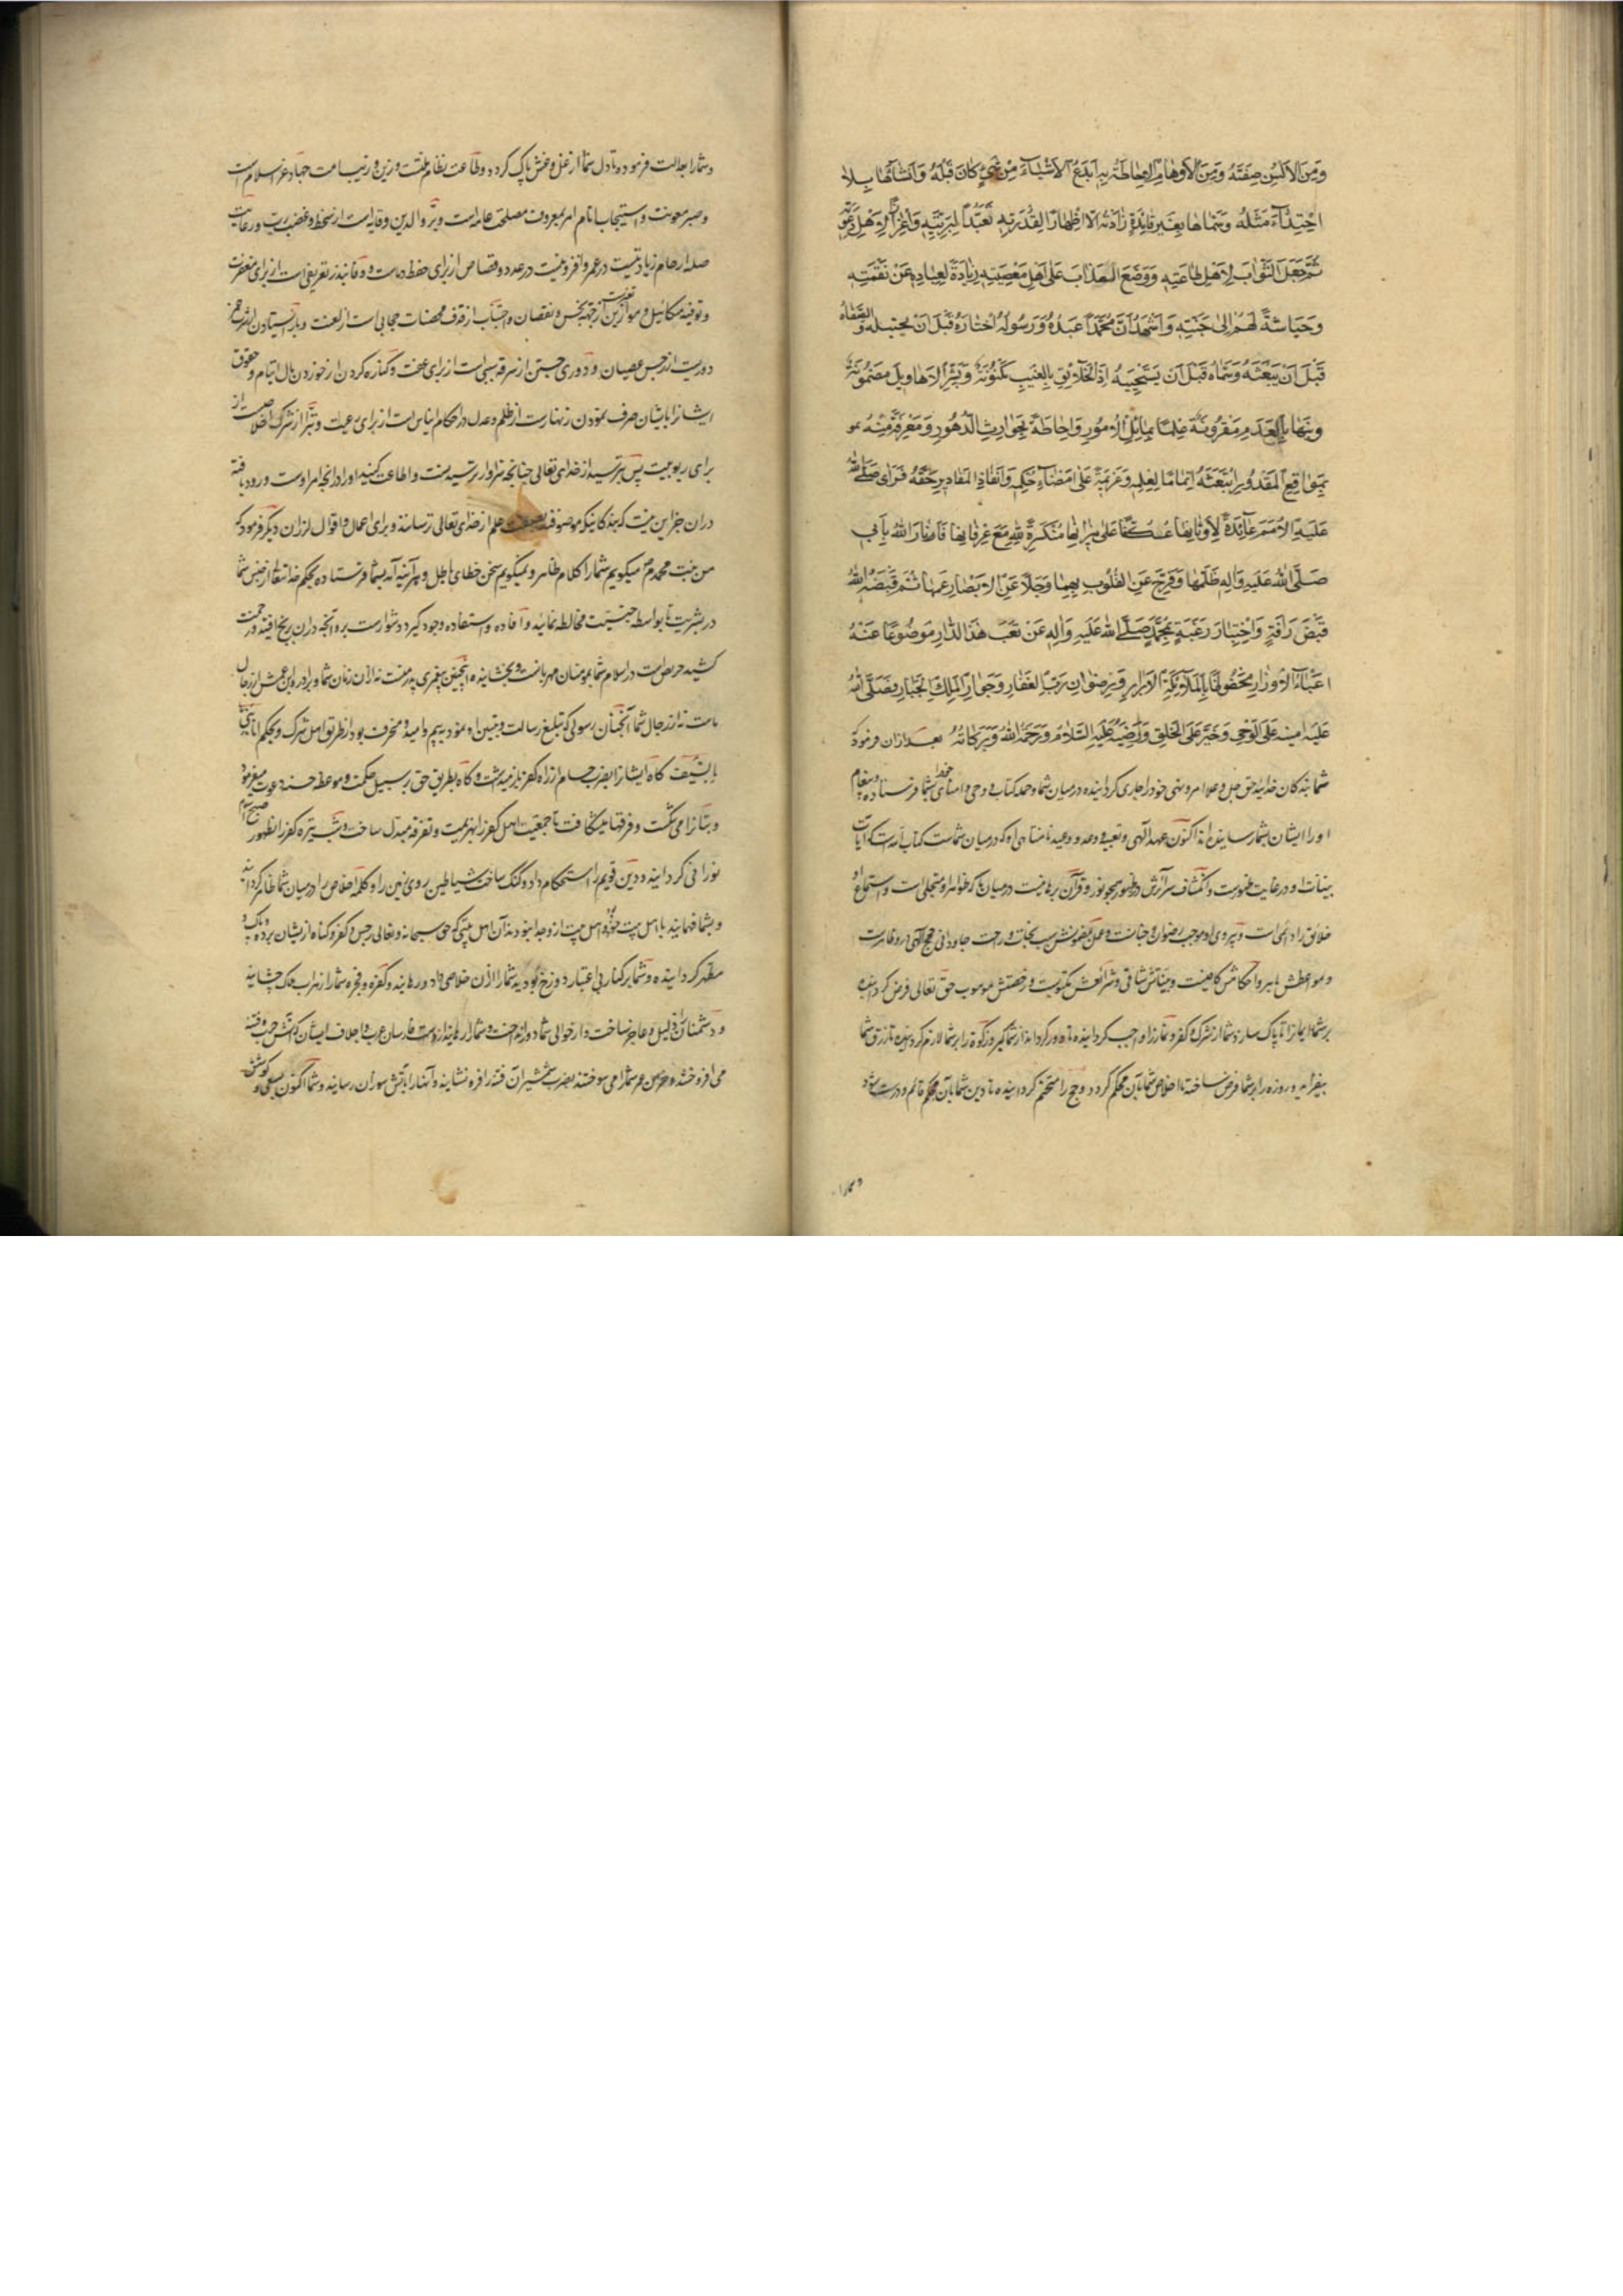 ومن الالسن صفته ومن الاوهام الاحاطة به ابدع الاشیاء من شیء کان قبله وانشاها بلا
احتذاء مثله وسماها بغیر فایدة زادته الا اظهارا لقدرته تعبدا لبریته واعزازا لاهل دعوته
ثم جعل الثواب لاهل طاعته ووضع العذاب علی اهل معصیته زیادة لعباده عن نقمته
وحیاشة لهم الی جنته واشهد ان محمدا عبده ورسوله اختاره قبل ان یجتبله واصطفاه
قبل ان یبعثه وسماه قبل ان یستجیبه اذ الخلائق بالغیب مکنونة وبستر الاهاویل مضمونة
وبنهایة العدم مقرونة علما بمائل الامور واحاطة بحوادث الدهور ومعرفة منه
بمواقع المقدور ابتعثه اتماما لعلمه وعزیمة علی امضاء حکمه وانفاذا لمقادیر حقه فرای صلی الله
علیه الامم عابدة لاوثانها عکفا علی نیرانها منکرة لله مع عرفانها فانار الله بابی
صلی الله علیه واله ظلمها وفرج عن القلوب بهمها وجلا عن الابصار عمها ثم قبضه الله
قبض رافة واختیار رغبة بمحمد صلی الله علیه واله عن تعب هذا الدار موضوعا عنه
اعباء الاوزار محفوفا بالملائکة الابرار ورضوان رب الغفار وجوار الملک الجبار فصلی الله
علیه امینه علی الوحی وخیرته علی الخلق ورضیه علیه السلام ورحمة الله وبرکاته بعد ازان فرمود که
شما بندکان خدایید حق جل وعلا امر ونهی خود را جاری کردانیده در میان شما وحمله کتاب و وحی وامنای خدا بشما فرستاده وپیغام
او را ایشان بشما رسانیده اند اکنون عهد الهی در میان شماست کتاب آمدست که آیات
بینات او در غایت ظهورست وانکشاف سرائرش در ظهور همچو نور وقرآن برهانیست در میان ما که ظواهر او متجلی است واستماع او
خلایق را دائمی است وپیروی او موجب رضوان وجنانست وعمل بمضمونش سبب نجات وراحت جاودانی حجج الهی در و ظاهرست
ومواعظش باهر واحکامش کافیست وبیناتش شافی وشرائعش مکتوبست ورخصتش موهوب حق تعالی فرض کردانیده
بر شما ایمانرا تا پاک سازد شما را از شرک وکفر ونماز را واجب کردانیده تا دور کرداند از شما کبر وزکوة را بر شما لازم کردانیده تا رزق شما
بیفزاید و روزه را بر شما فرض ساخته تا اخلاص شما بآن محکم کردد وحج را متحتم کردانیده تا دین شما بآن محکم قائم ودرست شود
وشما را
وشما را بعدالت فرموده تا دل شما از غل وغش پاک کردد وطاعت نظام ملتست وزین وزیب امت جهاد عز اسلام است
وصبر معونت واستیجاب امر بمعروف مصلحت عامه است وبر والدین وقایه است از سخط وغضب رب ورعایت
صله ارحام زیادتیست در عمر وافزونیست در عدد وقصاص از برای حفظ دماست ووفا بنذر تعریض است از برای مغفرت
وتوفیه مکائیل وموازین از جهة بخس ونقصان واجتناب از قذف محصنات حجابی است از لعنت وباز ایستادن از شرب خمر
دوریست از رجس عصیان ودوری جستن از سرقه سببی است از برای عفت وکناره کردن از خوردن مال ایتام وحقوق
ایشانرا بایشان صرف نمودن زنهارست از ظلم وعدل در احکام ایناس است از برای رعیت وتبرا از شرک اخلاصیست از
برای ربوبیت پس بترسید از خدای تعالی چنانچه سزاوار ترسیدنست واطاعت کنید او را در آنچه امر اوست ورود یافته
در آن جز این نیست که بندکانیکه موصوفند بصفت علم از خدای تعالی ترسانند وبرای اعمال واقوال لرزان دیکر فرمود که
من بنت محمدم میکویم شما را کلام ظاهر ونمیکویم سخن خطای باطل وهر آینه آمد بشما فرستاده بحکم خدا تعالی از جنس شما
در بشریت تا بواسطه جنسیت مخالطه نمائید وافاده واستفاده وجود کیرد دشوارست برو آنچه در آن برنج افتید وزحمت
کشید حریص است در اسلام شما بمؤمنان مهربانست وبخشاینده اینچنین پیغمبری پدر منست نه از آن زنان شما وبرادر ابن عمش از رجال
ماست نه از رجال شما آنچنان رسولی که تبلیغ رسالت وتبیین او نمود به بیم وامید ومنحرف بود از طریق اهل شرک وبحکم انا نبی
بالسیف کاه ایشانرا بضرب حسام از راه کفر باز میداشت وکاه بطریق حق بر سبیل حکمت وموعظه حسنه دعوت میفرمود
وبتانرا می شکست وفرقها میشکافت تا جمعیت اهل کفر را بهزیمت وتفرقه مبدل ساخت وشب تیره کفر را بظهور صبح اسلام
نورانی کردانید ودین قویم را استحکام داد وکنک ساخت شیاطین روی زمین را وکلمه اخلاص را در میان شما ظاهر کردانید
وبشما فهمانید با اهل بیت خود واهل بیت ازو جدا نبودند آن اهل بیتی که حق سبحانه وتعالی رجس وکفر وکناه از ایشان برده وپاک و
مطهر کردانیده وشما بر کنار بی اعتبار دوزخ بودید شما را از آن خلاصی داد ورهانید وکفره وفجره شما را از شراب هلاک چشانید
ودشمنانرا ذلیل وعاجز ساخت واز حوالی شما دور انداخت وشما را رهانید از دست فارسان عرب واجلاف ایشان که آتش حرب وفتنه
می افروختند وخرمن عمر شما را می سوختند بضرب شمشیر آن فتنه را فرو نشانید وآنها را بآتش سوزان رسانید وشما اکنون بسعی وکوشش